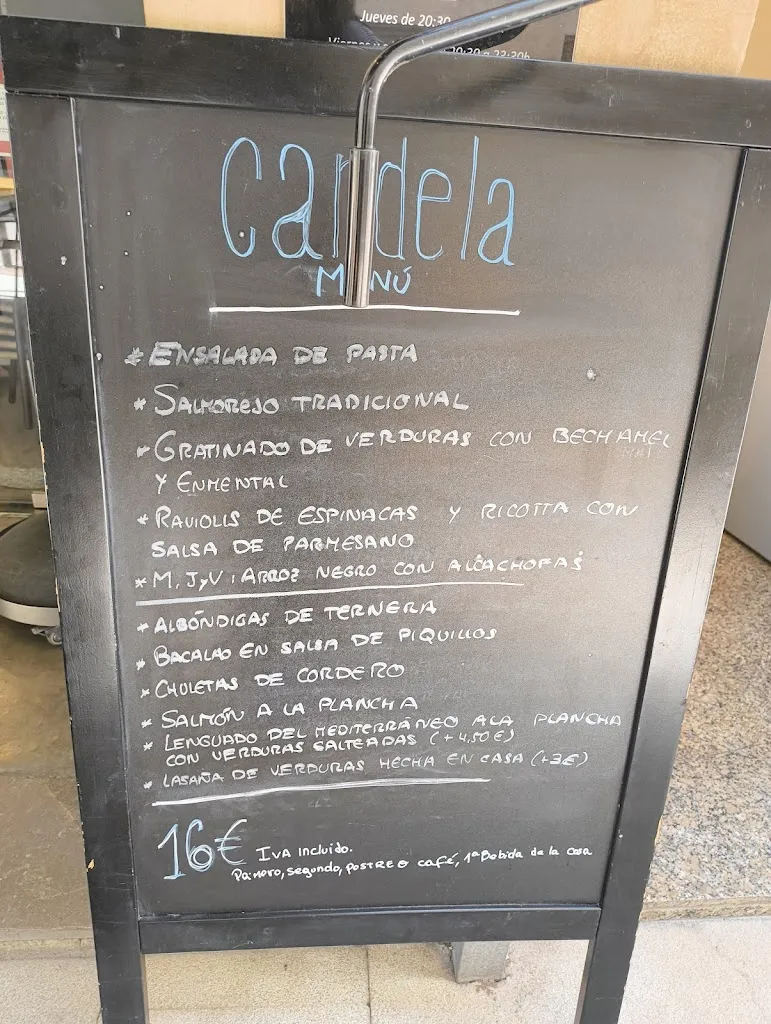 Jueves de 20:30
20:30 a 23:30h
candela
MENÚ
* ENSALADA DE PASTA
* SALMOREJO TRADICIONAL
* GRATINADO DE VERDURAS CON BECHAMEL
Y ENMENTAL
* RAVIOLIS DE ESPINACAS Y RICOTTA CON
SALSA DE PARMESANO
* M, J y V: ARROZ NEGRO CON ALCACHOFAS
* ALBÓNDIGAS DE TERNERA
* BACALAO EN SALSA DE PIQUILLOS
* CHULETAS DE CORDERO
* SALMÓN A LA PLANCHA
* LENGUADO DEL MEDITERRÁNEO A LA PLANCHA
CON VERDURAS SALTEADAS (+4,50€)
* LASAÑA DE VERDURAS HECHA EN CASA (+3€)
16€ IVA incluido.
Primero, segundo, POSTRE O café, 1ª Bebida de la casa